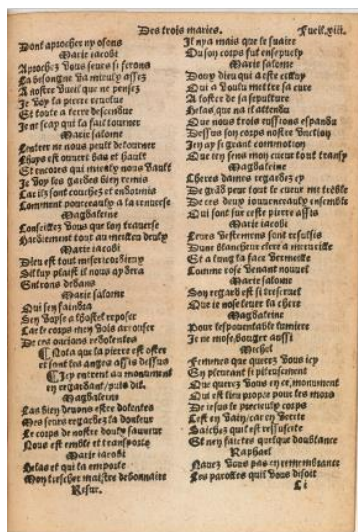 Des trois maries. Fueil.xiii.
Dont aprocher ny osons
Marie iacobi
Aprochez vous seurs si ferons
La besongne va mieulx assez
A nostre vueil que ne pensez
Je voy la pierre revolue
Et toute a terre descendue
Je ne scay qui la fait tourner
Marie salome
Lentrer ne nous peult destourner
Lhuys est ouvert bas et hault
Et encores qui mieulx nous vault
Je voy les gardes bien remis
Car ilz sont couchez et endormis
Comment pourceaulx a la renverse
Magdaleine
Conseillez vous que lon traverse
Hardiement tout au meilleu deulx
Marie iacobi
Dieu est tout misericordieux
Sil luy plaist il nous aydera
Entrons dedans
Marie salome
Qui sen faindra
Sen voyse a lhostel reposer
Car le corps men vois arrouser
De ces oncions redolentes
Nota que la pierre est ostee
et sont les anges assis dessus
Icy entrent au monument
en regardant/puis dit.
Magdaleine
Las bien devons estre dolentes
Mes seurs regardez la douleur
Le corps de nostre doulx sauveur
Nous est emble et transporte
Marie iacobi
Helas et qui la emporte
Mon treschier maistre debonnaire
Resur.
Il ny a mais que le suaire
Ou son corps fut ensepvely
Marie salome
Doux dieu qui a este celluy
Qui a voulu mettre sa cure
A loster de sa sepulture
Helas que na il attendu
Que nous trois eussions espandu
Dessus son corps nostre unction
Jen ay si grant commotion
Que ien sens mon cueur tout transy
Magdaleine
Cheres dames regardez cy
De grãd peur tout le cueur me trẽble
De ces deux iouvenceaulx ensemble
Qui sont sur ceste pierre assis
Marie iacobi
Leurs vestemens sont resulsis
Dune blancheur clere a merveille
Et a lung la face vermeille
Comme rose venant nouvel
Marie salome
Son regard est si tres cruel
Que ie nose lever la chere
Magdaleine
Pour lespouentable lumiere
Je ne mose bouger aussi
Michel
Femmes que querez vous icy
En plourant si piteusement
Que querez vous en ce monument
Qui est lieu propre pour les mors
De iesus le precieulx corps
Cest en vain/car en verite
Saichez quil est ressuscite
Et ney faictes quelque doubtance
Raphael
Navez vous pas en remembrance
Les parolles quil vous disoit